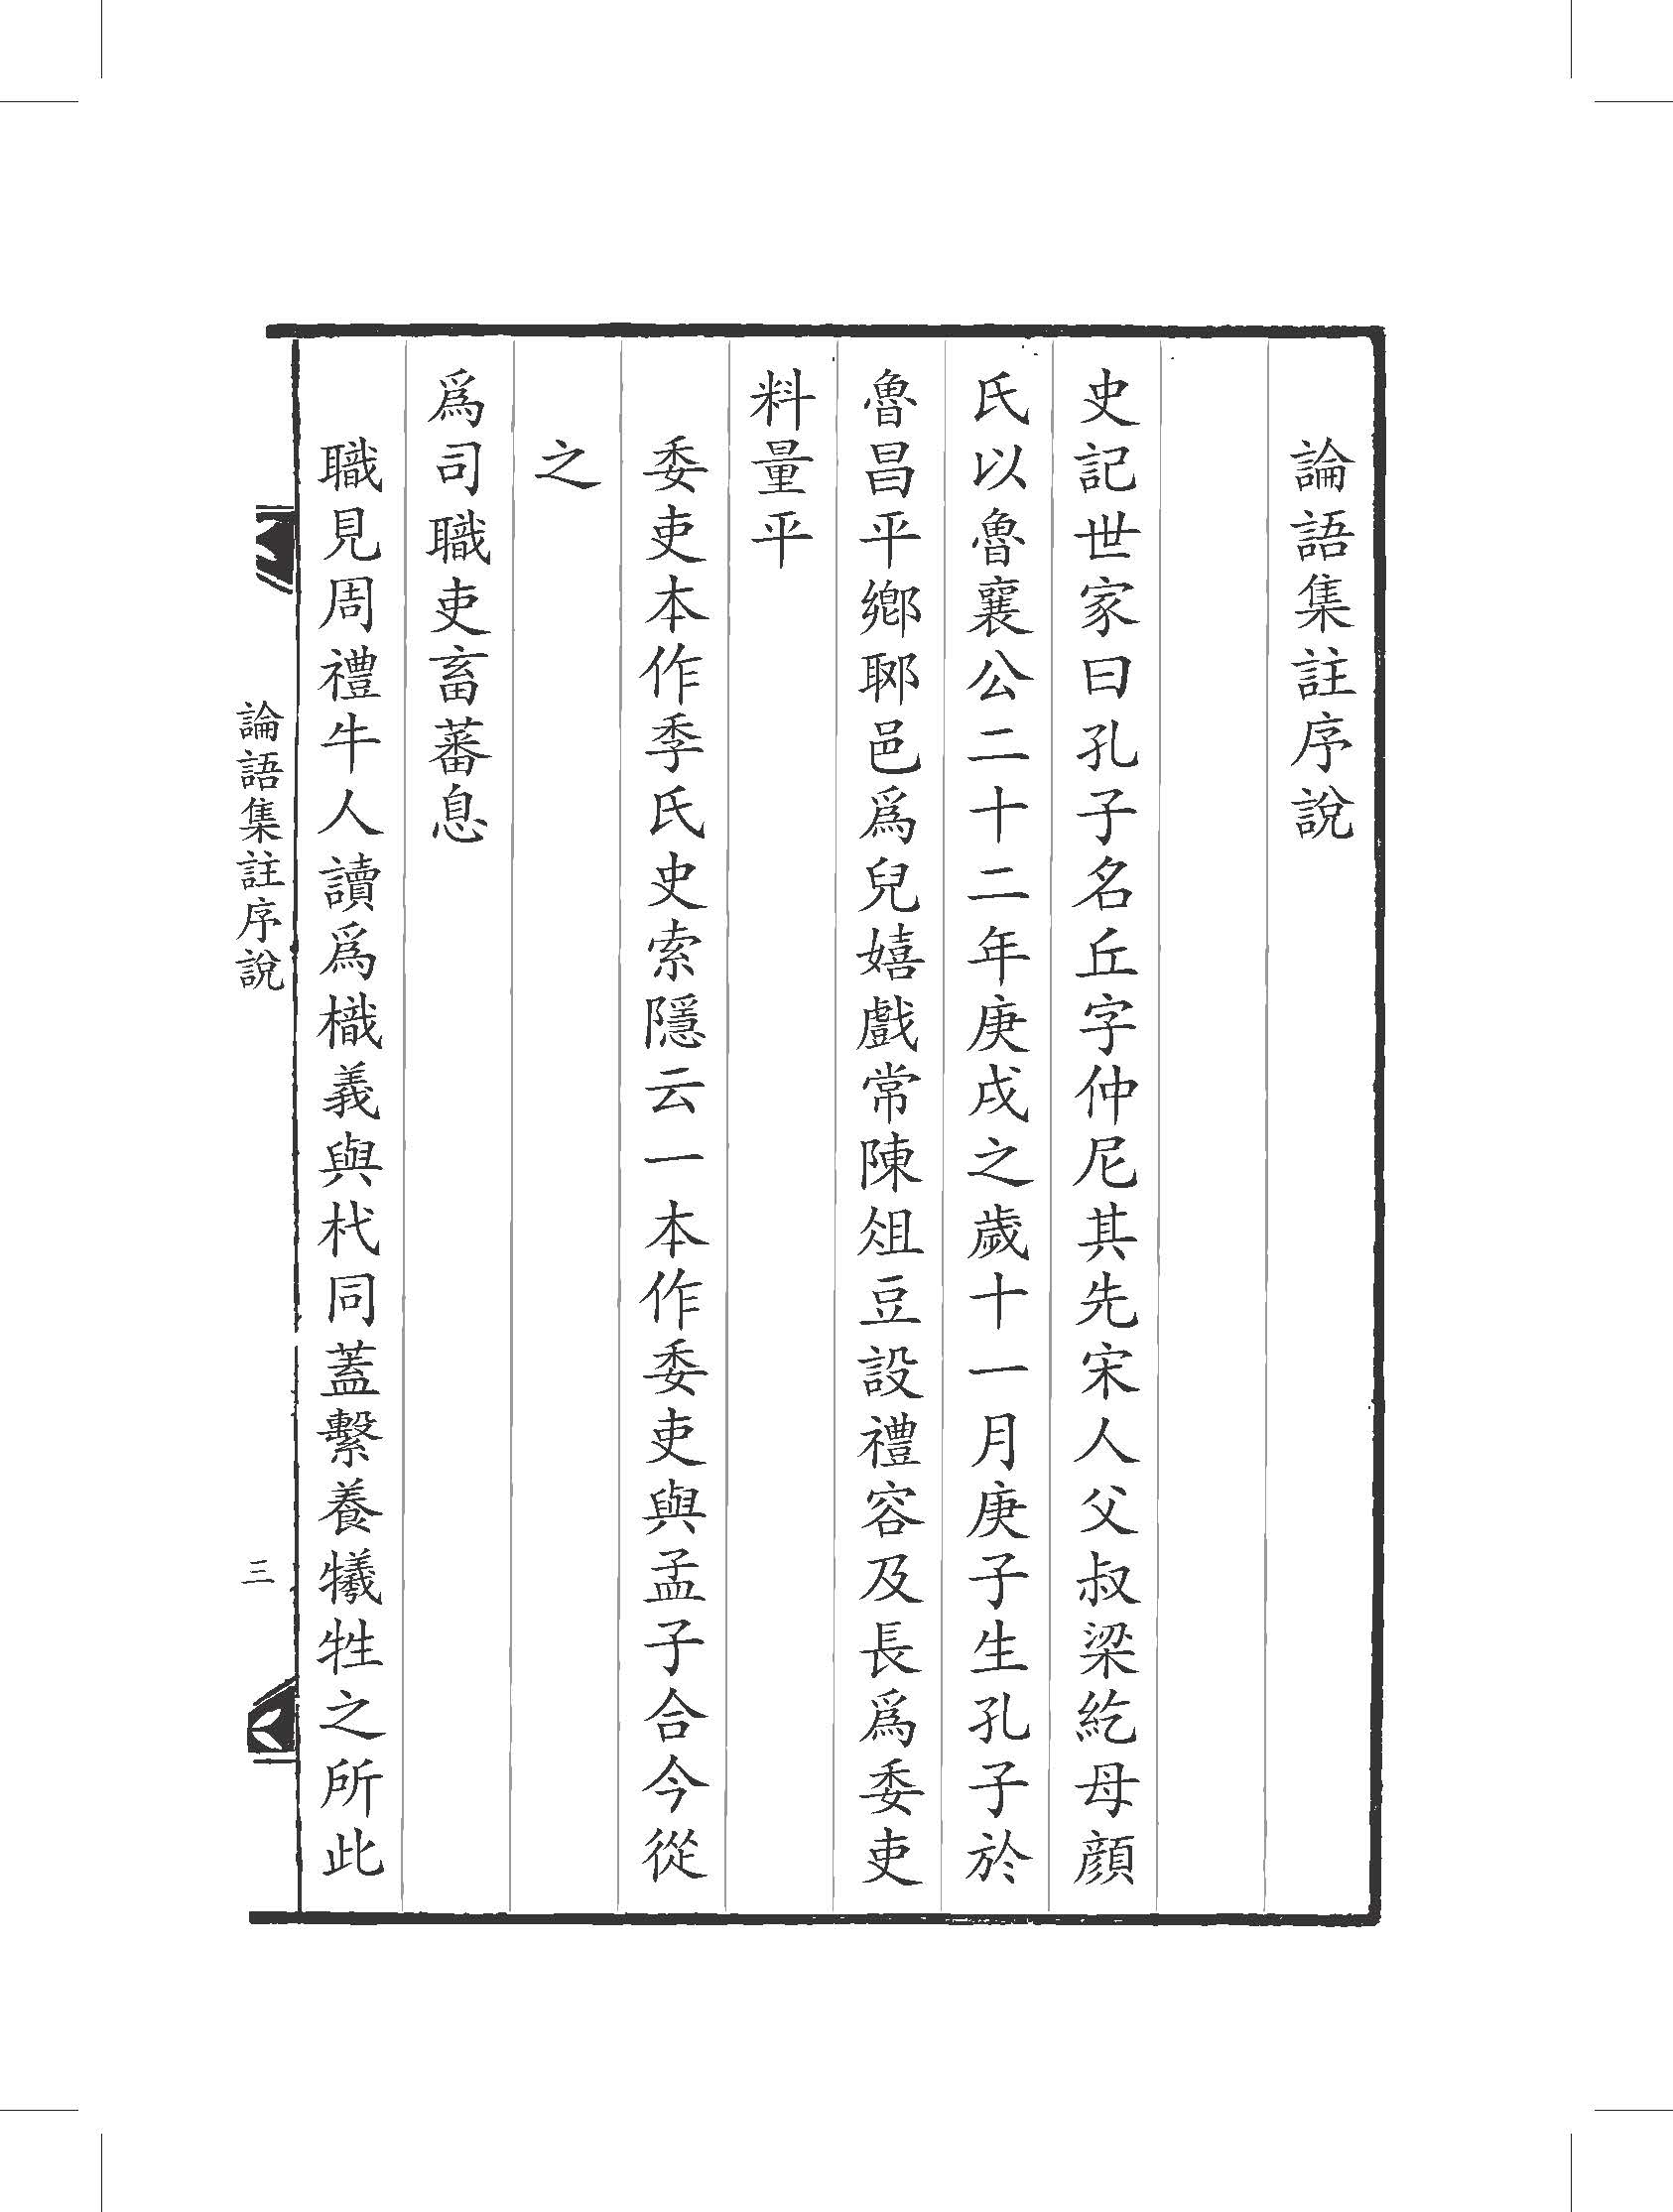 論語集註序說
史記世家曰孔子名丘字仲尼其先宋人父叔梁紇母顔
氏以魯襄公二十二年庚戌之歲十一月庚子生孔子於
魯昌平鄉郰邑爲兒嬉戲常陳俎豆設禮容及長爲委吏
料量平
委吏本作季氏史索隱云一本作委吏與孟子合今從
之
爲司職吏畜蕃息
職見周禮牛人讀爲樴義與杙同蓋繫養犧牲之所此
論語集註序說
三